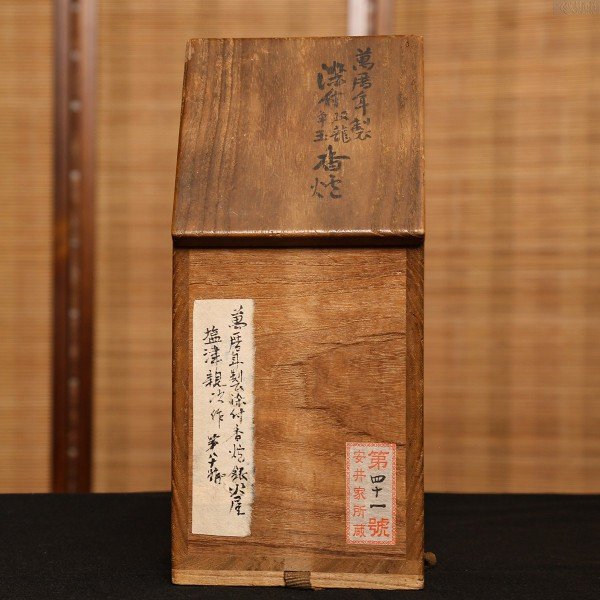 萬暦年製
染付双龍
香炉
萬暦年製染付香炉銀火屋
塩津親次作
第四十一號
安井家所蔵